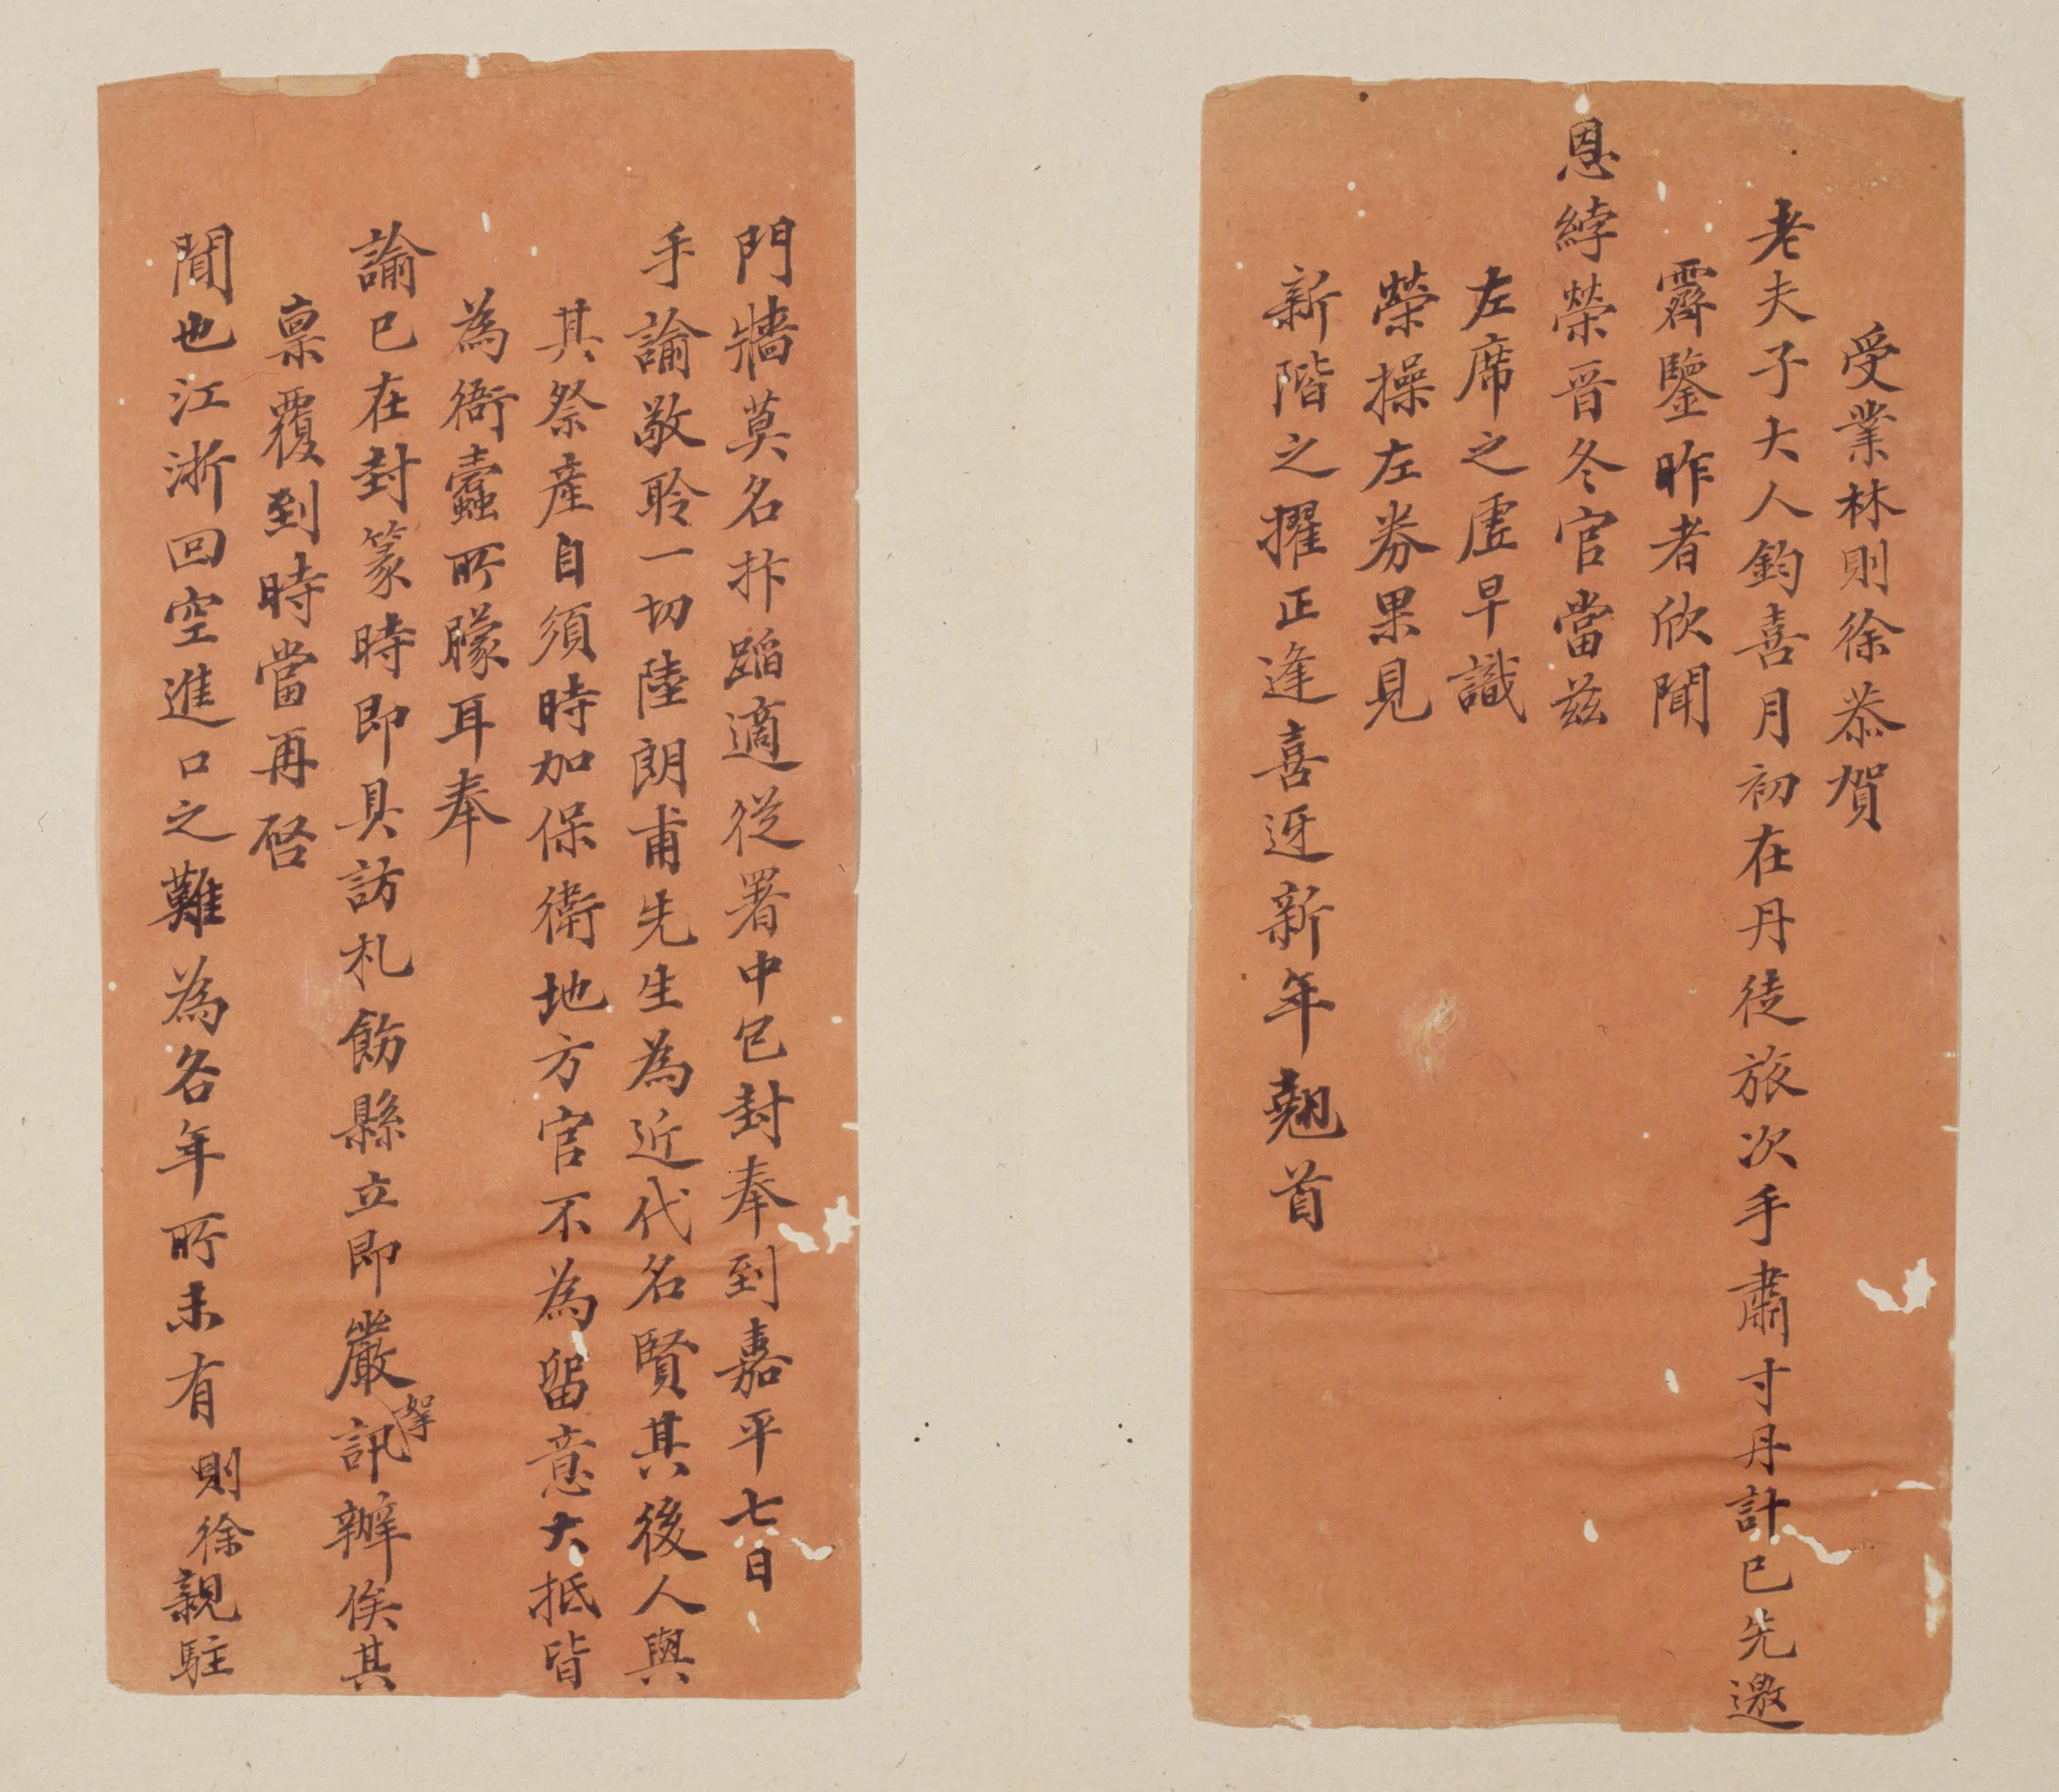 受業林則徐恭賀
老夫子大人鈞喜月初在丹徒旅次手肅寸丹計已先邀
霽鑒昨者欣聞
恩綍榮晉冬官當茲
左席之虛早識
榮操左券果見
新階之擢正逢喜迓新年翹首
門牆莫名抃蹈適從署中包封奉到嘉平七日
手諭敬聆一切陸朗甫先生為近代名賢其後人與
其祭產自須時加保衛地方官不為留意大抵皆
為衙蠹所矇耳奉
諭已在封篆時即具訪札飭縣立即嚴拏訊辦俟其
稟覆到時當再啓
聞也江浙回空進口之難為各年所未有則徐親駐